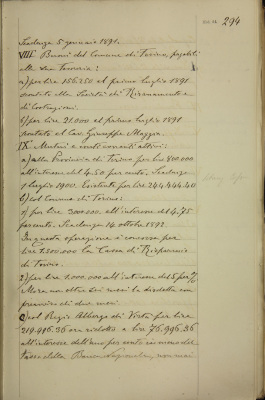 294
Scadenza 5 gennaio 1891.
VIII. Buoni del Comune di Torino, pagabili
alla sua Tesoreria:
a) per lire 156.250 al primo luglio 1891
scontato alla Società di Risanamento e
di Costruzioni.
b) per lire 21.000 al primo luglio 1891
scontato al Cav. Giuseppe Maggia.
IX. Mutui e conti correnti attivi:
a) alla Provincia di Torino per lire 400.000
all'interesse del 4.50 per cento, Scadenza
1 luglio 1900. Esistente per lire 244.444.40
b) col Comune di Torino:
1) per lire 300.000 all'interesse del 4.75
per cento. Scadenza 14 ottobre 1892.
In questa operazione è concorsa per
lire 1.200.000 la Cassa di Risparmio
di Torino.
2) per lire 1.000.000 all'interesse del 5 per %
Mora non oltre sei mesi la disdetta con
preavviso di due mesi.
c) col Regio Albergo di Virtù per lire
219.496.36 ora ridotto a lire 76.996.36
all'interesse dell'uno per cento in meno del
tasso della Banca Nazionale, non mai